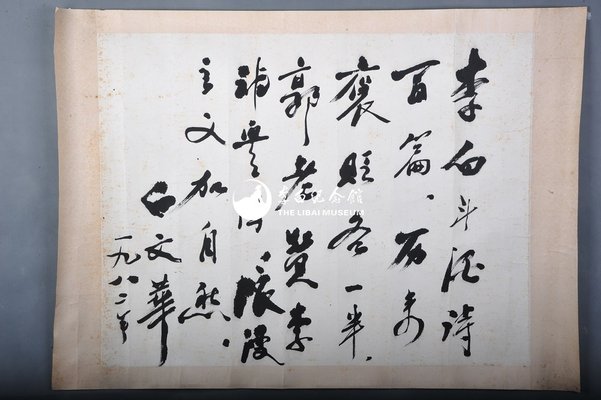 李白斗酒诗
百篇、历来
褒贬各一半。
郭老赞李
浪漫
主义加自然。
文华
一九八二年
李白纪念馆
THE LIBAI MUSEUM